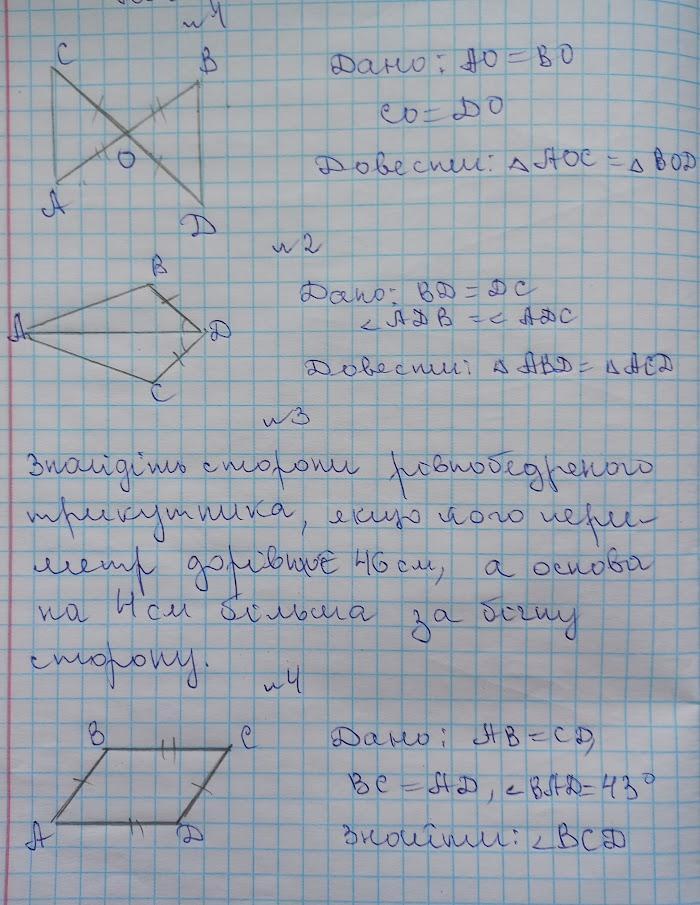 №1
C
B
O
A
D
Дано: AO = BO
CO = DO
Довести: △ AOC = △ BOD
№2
B
A
D
C
Дано: BD = DC
∠ADB = ∠ADC
Довести: △ ABD = △ ACD
№3
Знайдіть сторони рівнобедреного
трикутника, якщо його пери-
метр дорівнює 46 см, а основа
на 4 см більша за бічну
сторону.
№4
B
C
A
D
Дано: AB = CD,
BC = AD, ∠BAD = 43°
Знайти: ∠BCD